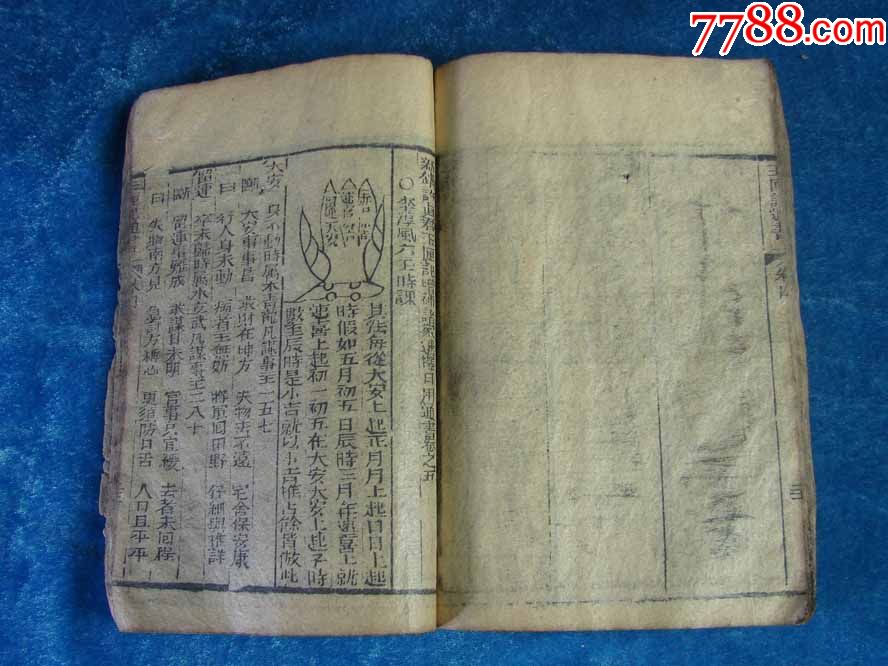 7788.com
玉匣記通書
卷四
○李淳風六壬時課
其法每從大安上起正月月上起日日上起
時假如五月初五日辰時三月在速喜上就
速喜上起初一初五在大安大安上起子時
數至辰時是小吉就以小吉推占餘皆倣此
赤口
小吉
速喜
空亡
留連
大安
大安 身不動時属木青龍凡謀事主一五七
斷 大安事事昌 求財在坤方 失物去不遠 宅舍保安康
曰 行人身未動 病者主無妨 將軍回田野 仔細與推詳
留連 卒未歸時属水玄武凡謀事主二八十
斷 留連事難成 求謀日未明 官事只宜緩 去者未回程
曰 失物南方見 急討方稱心 更須防口舌 人口且平平